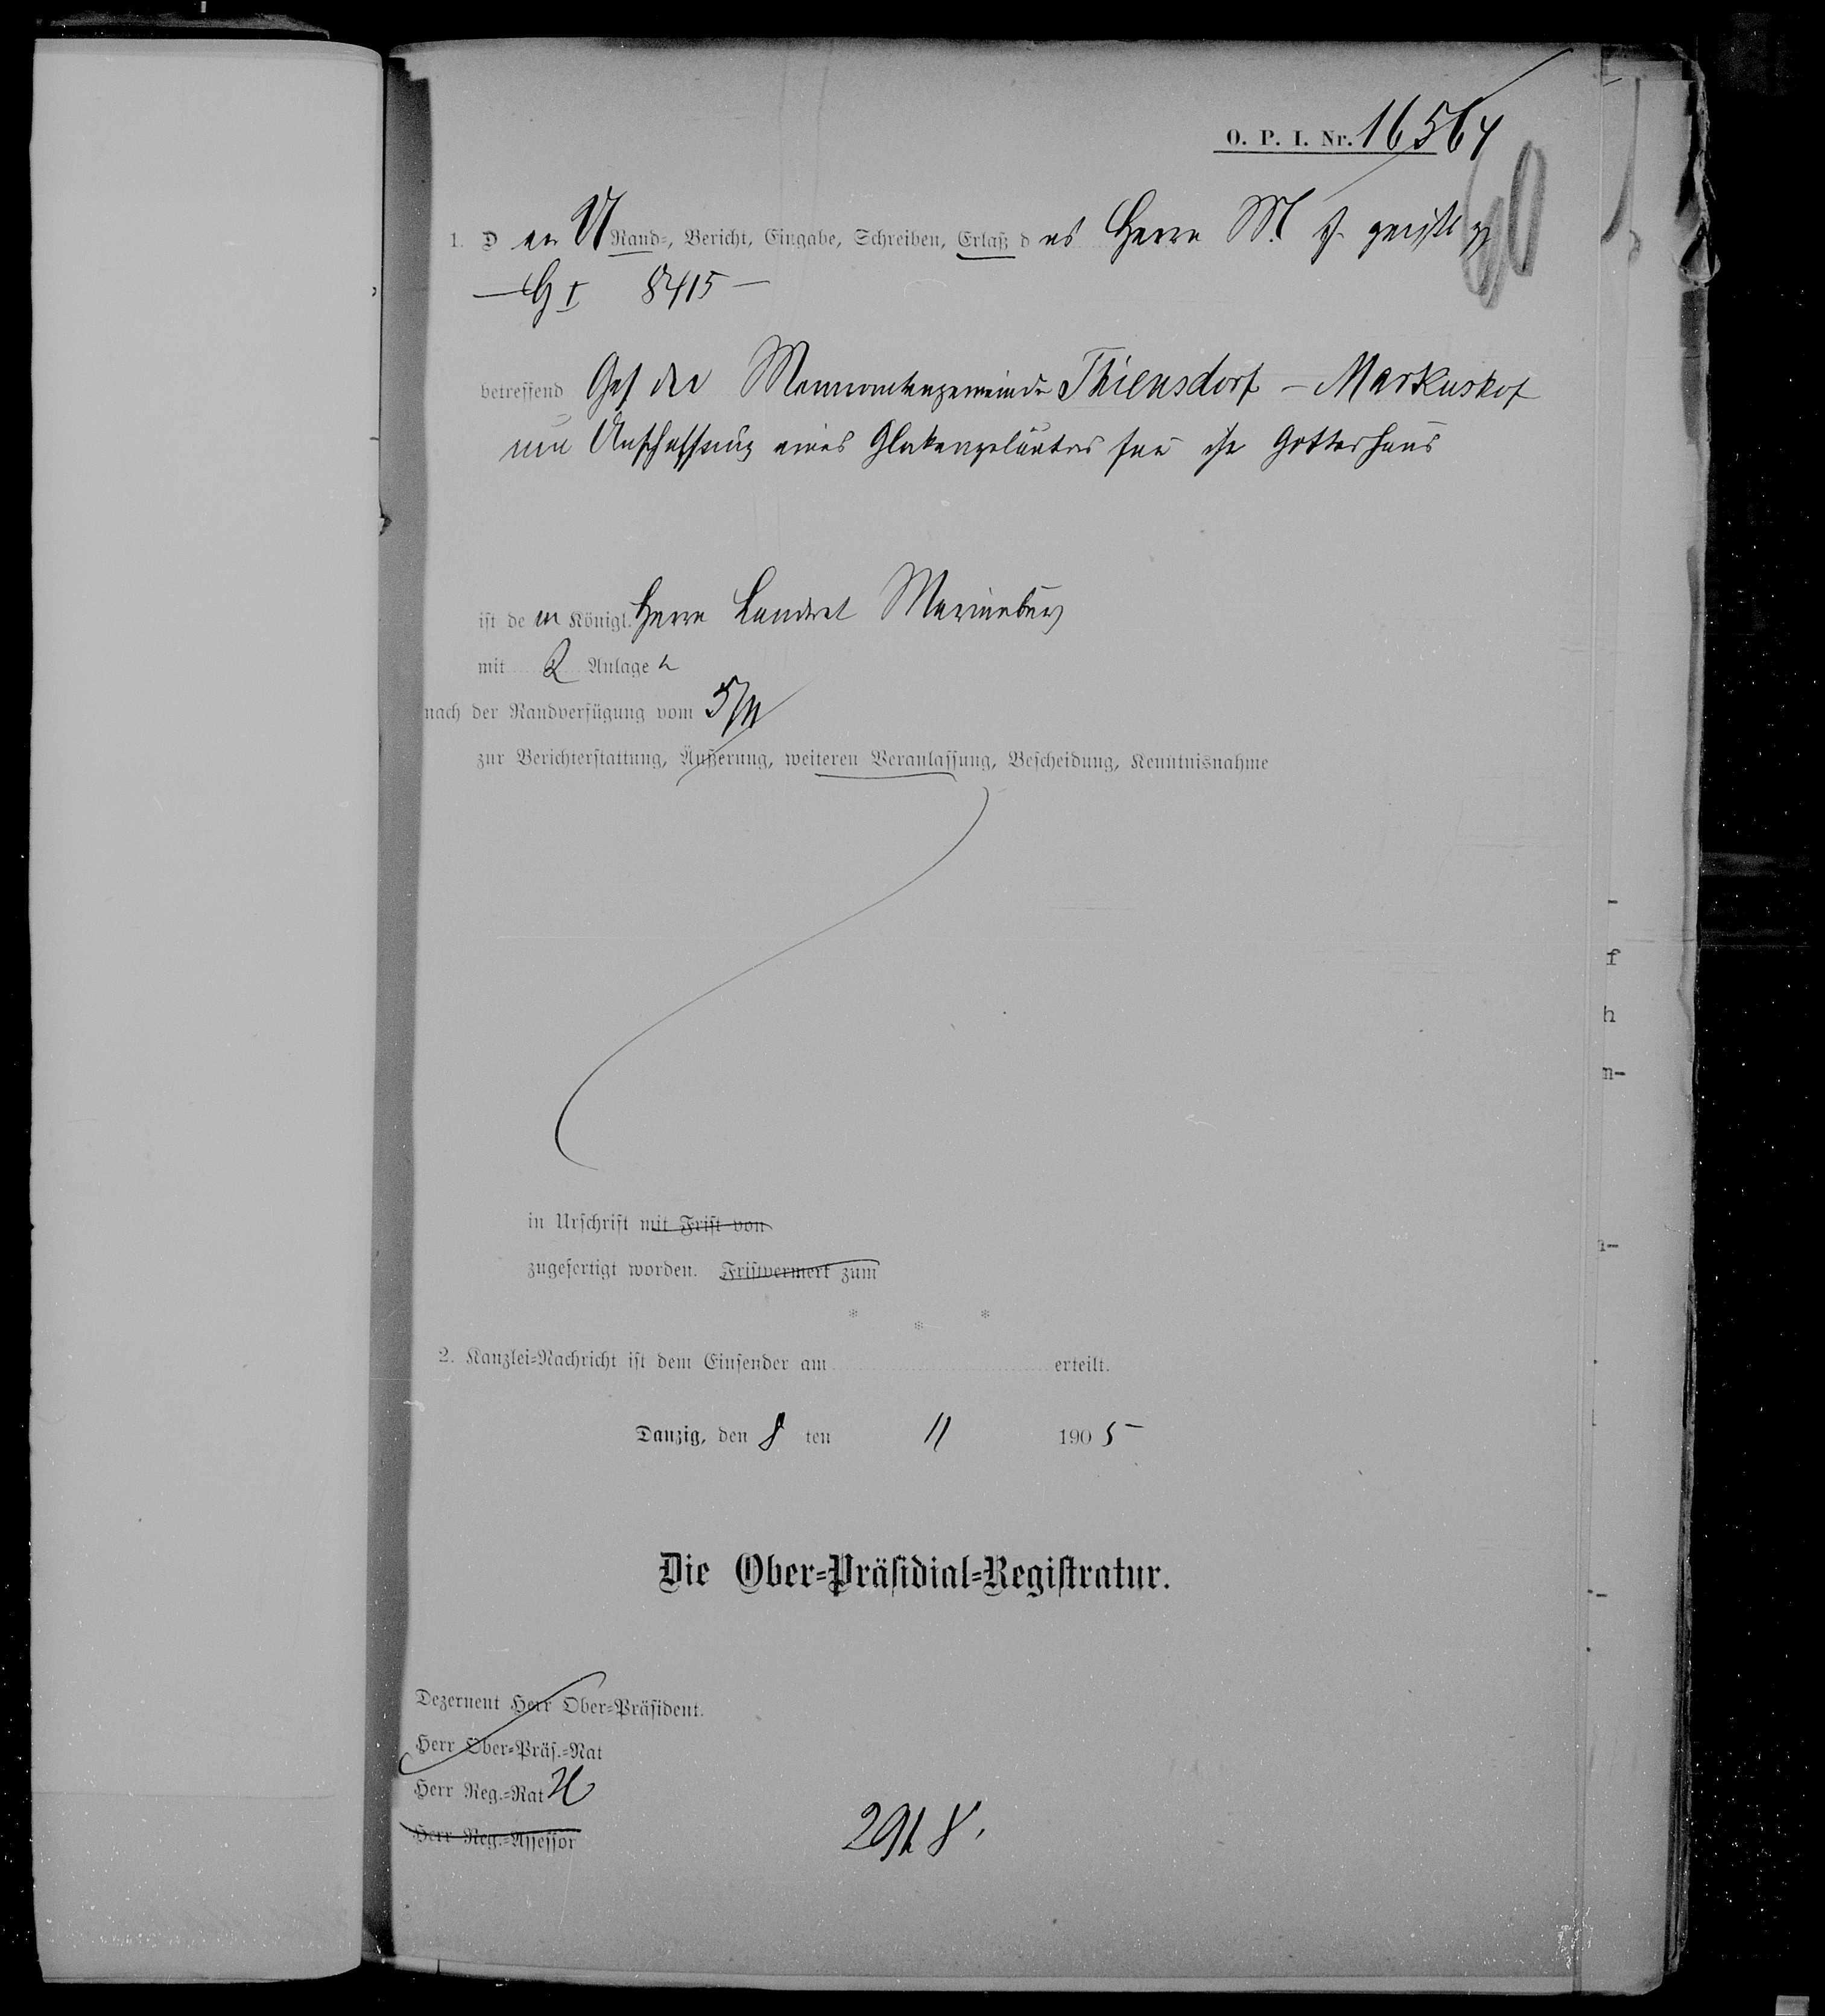 O. P. I. Nr. 16564
60
1. D er U Rand-, Bericht, Eingabe, Schreiben, Erlaß d es Herrn M. d. geistl.
— G I 8415 —
betreffend Ges. der Mennonitengemeinde Thiensdorf – Markushof
um Anschaffung eines Glockengeläutes für ihr Gotteshaus
ist de m Königl. Herrn Landrat Marienburg
mit 2 Anlage n
nach der Randverfügung vom 5/11
zur Berichterstattung, Äußerung, weiteren Veranlassung, Bescheidung, Kenntnisnahme
in Urschrift mit Frist von
zugefertigt worden. Fristvermerk zum
* * *
2. Kanzlei-Nachricht ist dem Einsender am erteilt.
Danzig, den 8 ten 11 190 5
Die Ober-Präsidial-Registratur.
Dezernent Herr Ober-Präsident.
Herr Ober-Präs.-Rat
Herr Reg.-Rat
Herr Reg.-Assessor
f
h
n-